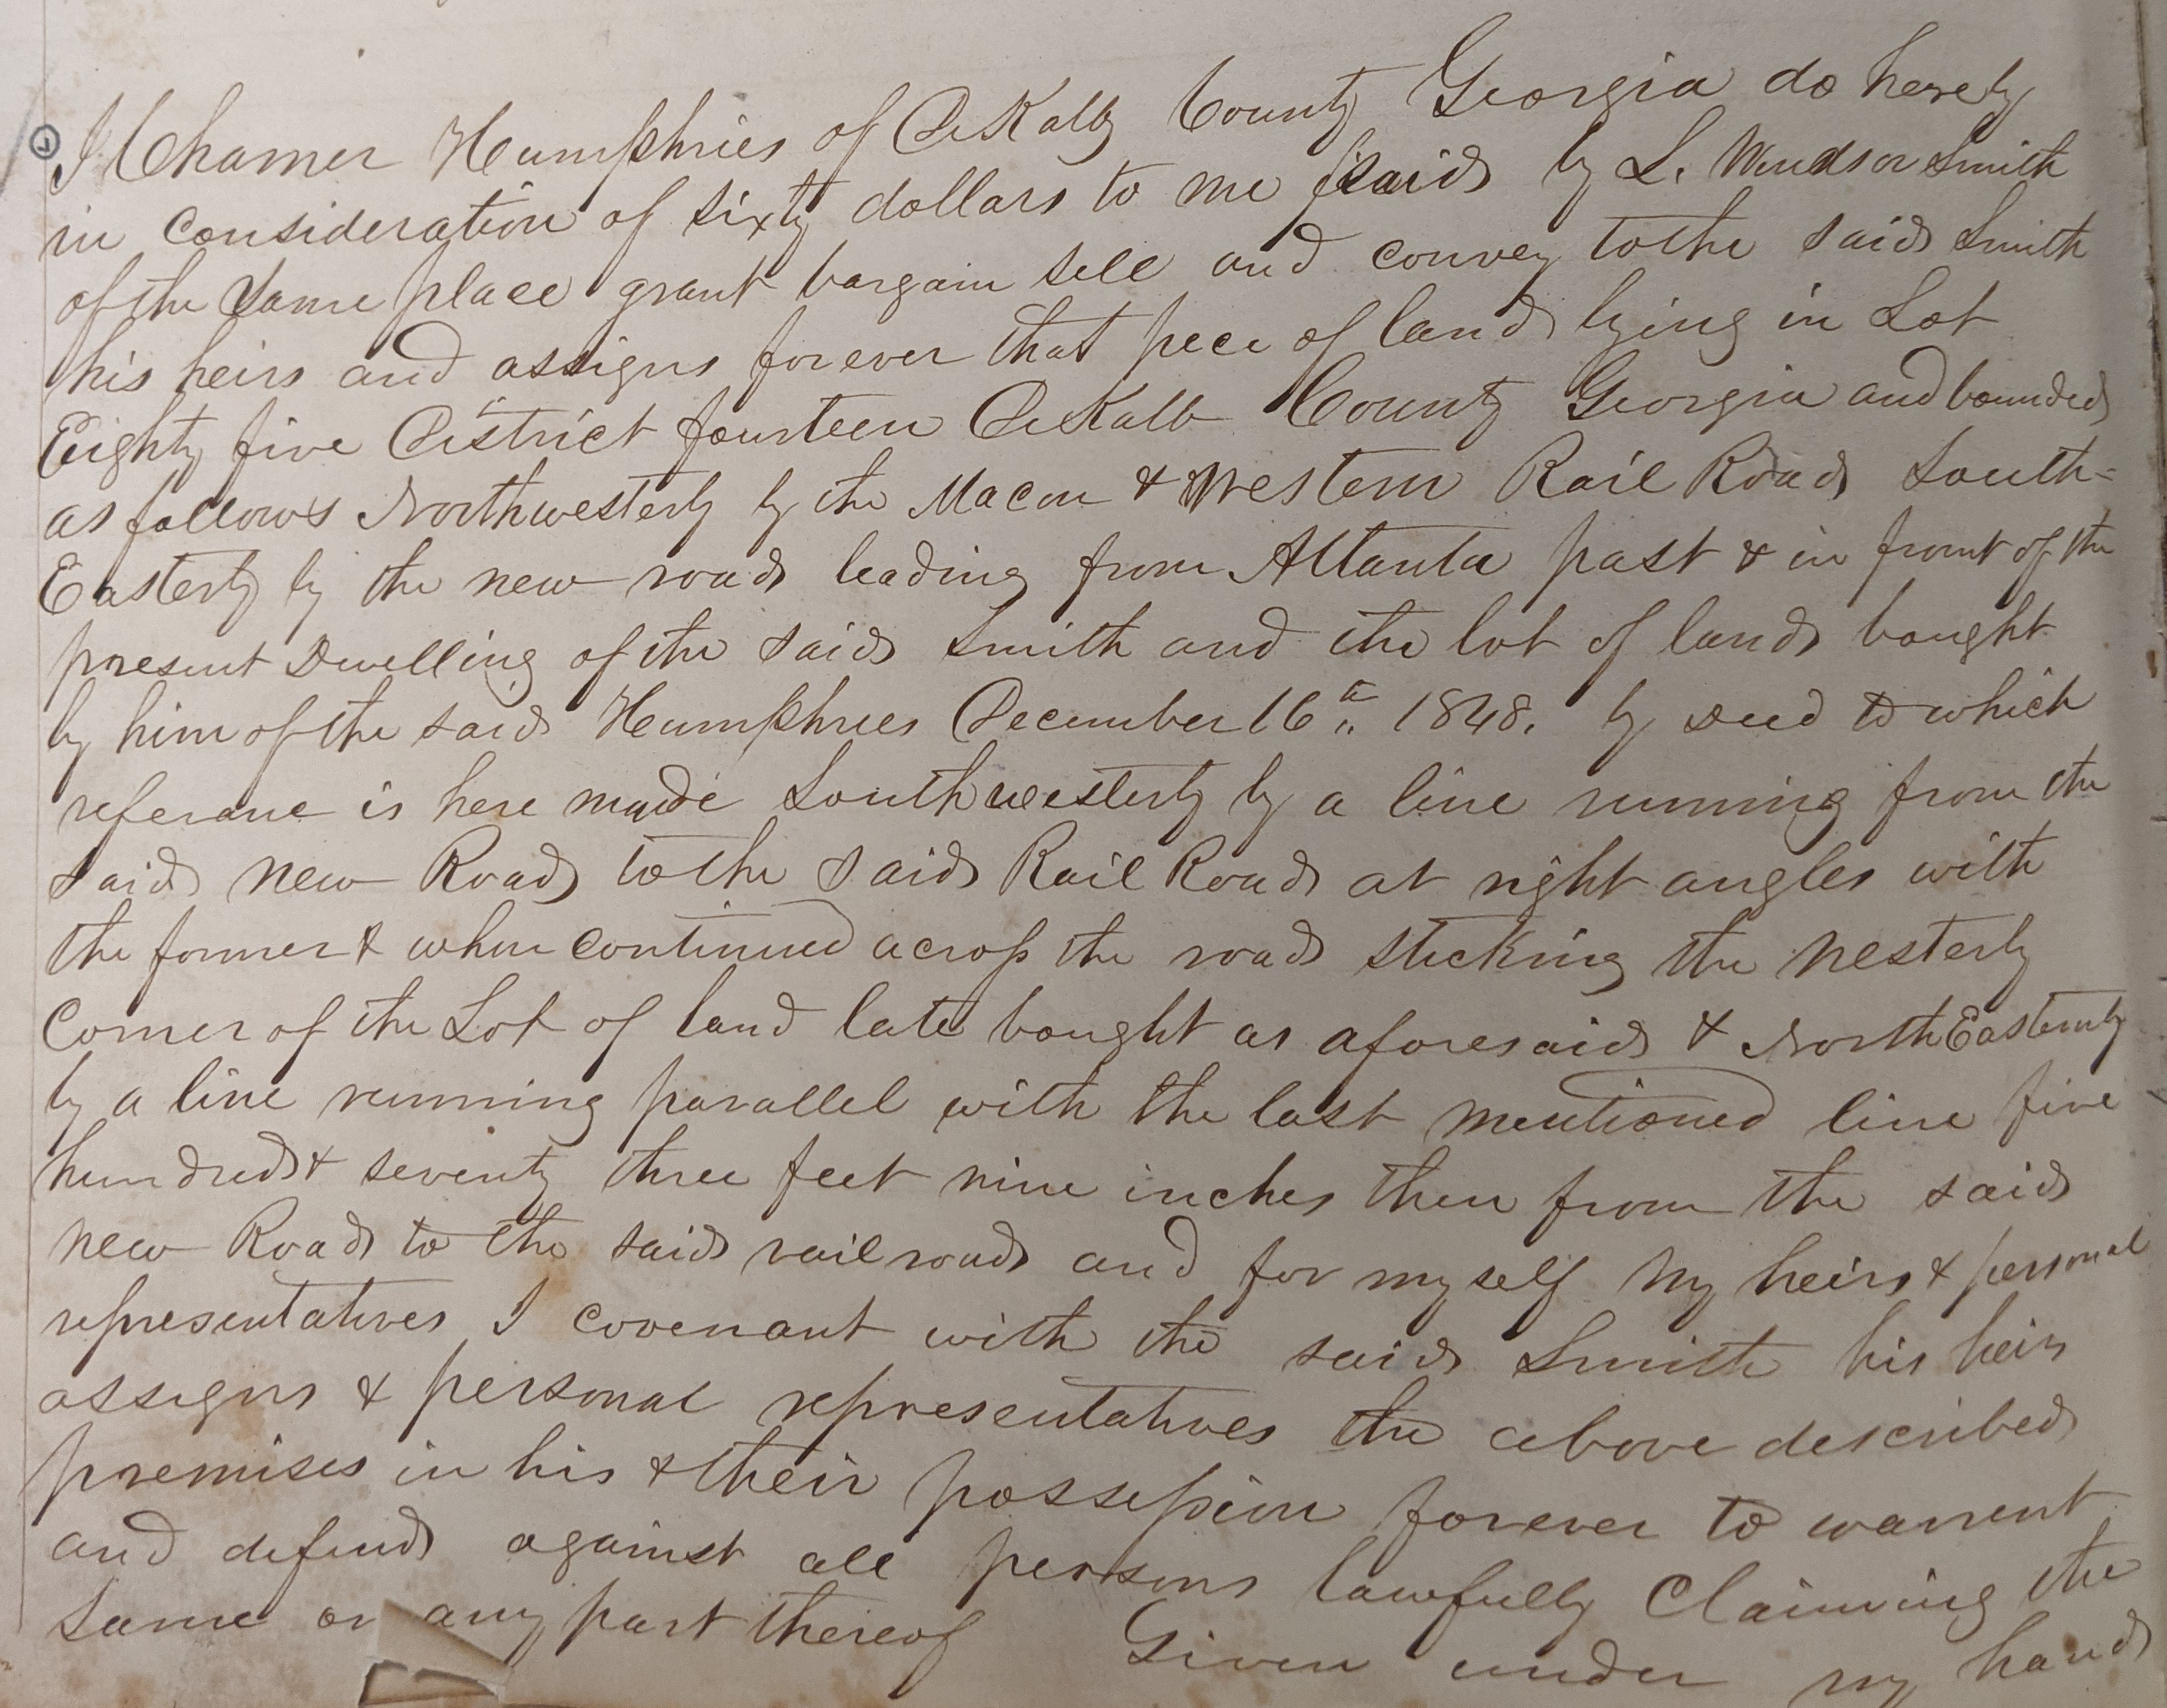 I Chamer Humphries of DeKalb County Georgia do hereby
in consideration of sixty dollars to me paid by L. Windsor Smith
of the same place grant bargain sell and convey to the said Smith
his heirs and assigns forever that pece of land lying in Lot
Eighty five District fourteen DeKalb County Georgia and bounded
as follows Northwesterly by the Macon & Western Rail Road South=
Easterly by the new road leading from Attanta past & in front of the
present Dwelling of the said Smith and the lot of land bought
by him of the said Humphries December 16th 1848. by Deed to which
referane is here made Southwesterly by a line running from the
said New Road to the said Rail Road at right angles with
the former & when continued across the road sticking the Westerly
Corner of the Lot of land late bought as aforesaid & North Easternly
by a line running parallel with the last mentioned line five
hundred & seventy three feet nine inches then from the said
new Road to the said railroad and for myself my heirs & personal
representatives I covenant with the said Smith his heirs
assigns & personal representatives the above described
premises in his & their possession forever to warrent
and defend against all persons lawfully Claiming the
same or any part thereof Given under my hand